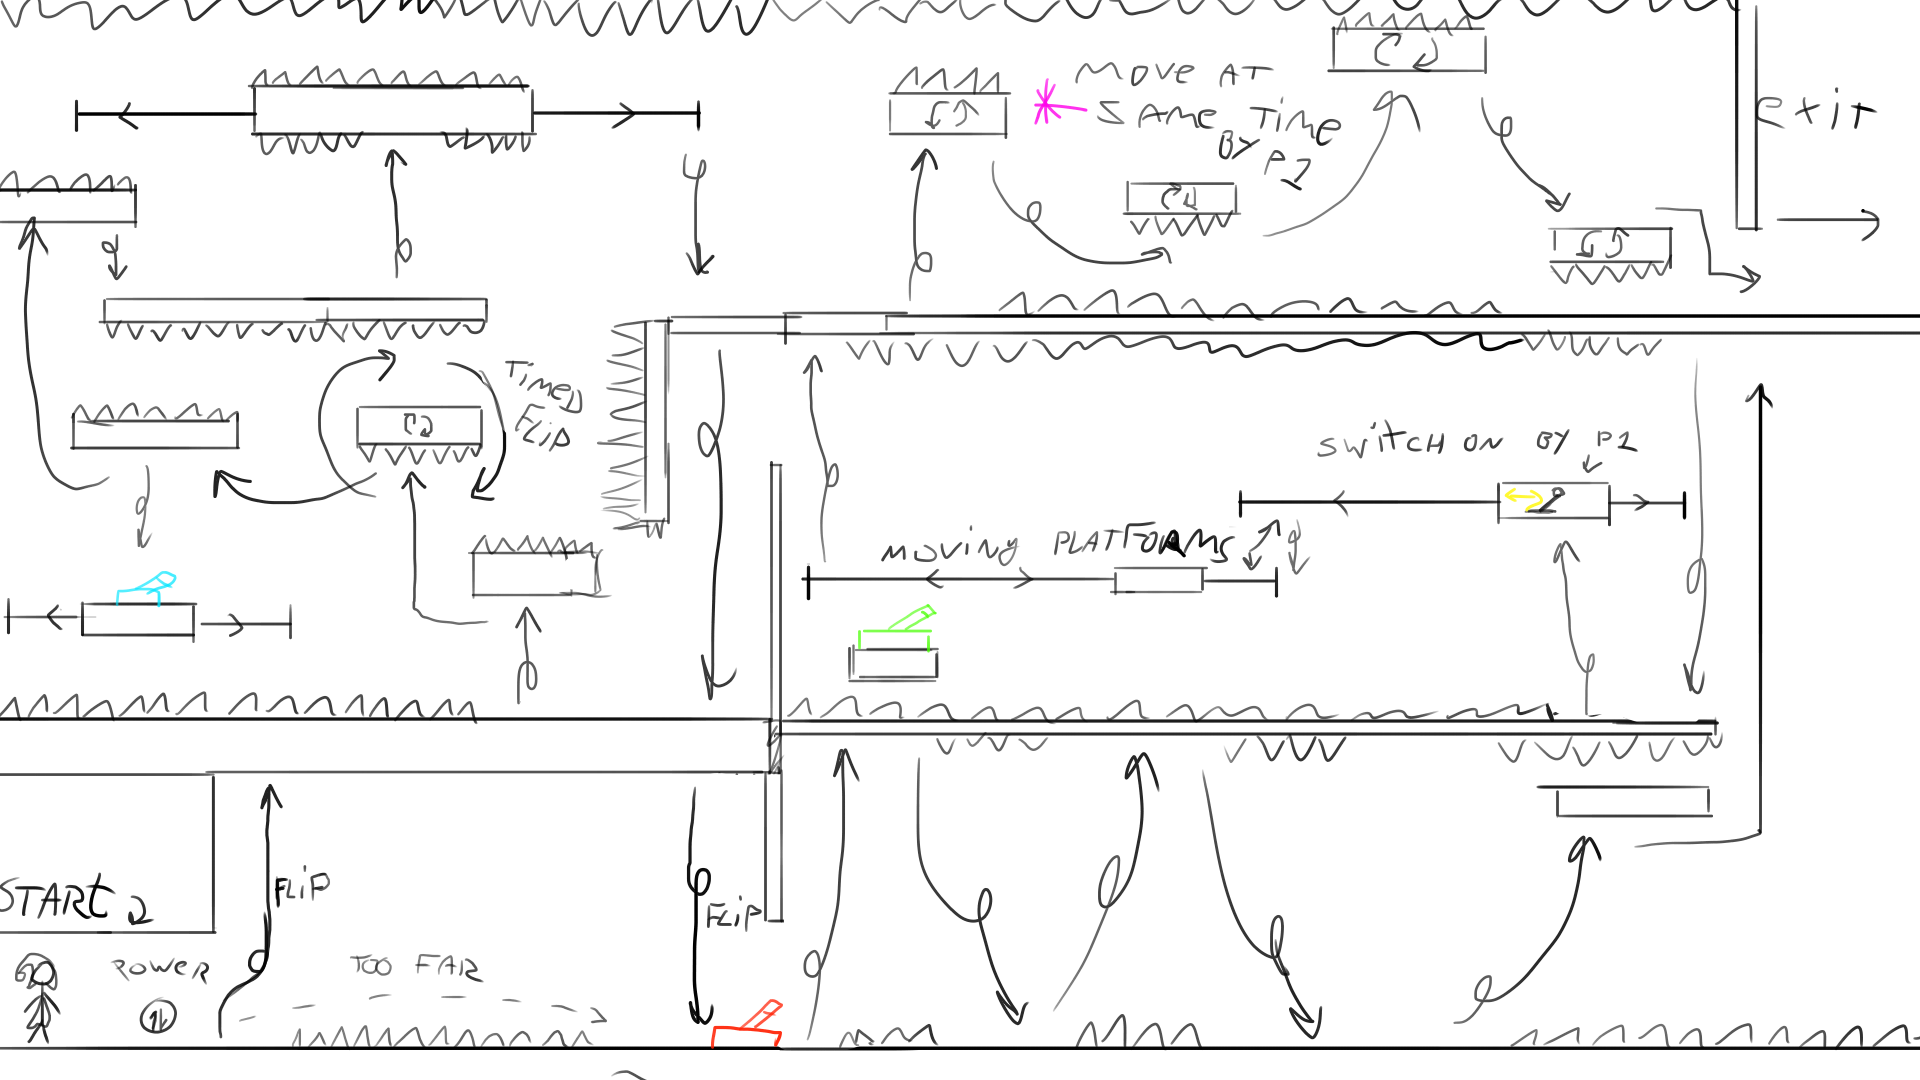 MOVE AT
SAME TIME
BY P1
exit
TIMED
FLIP
SWITCH ON BY P1
MOVING PLATFORMS
START
FLIP
FLIP
POWER
TOO FAR